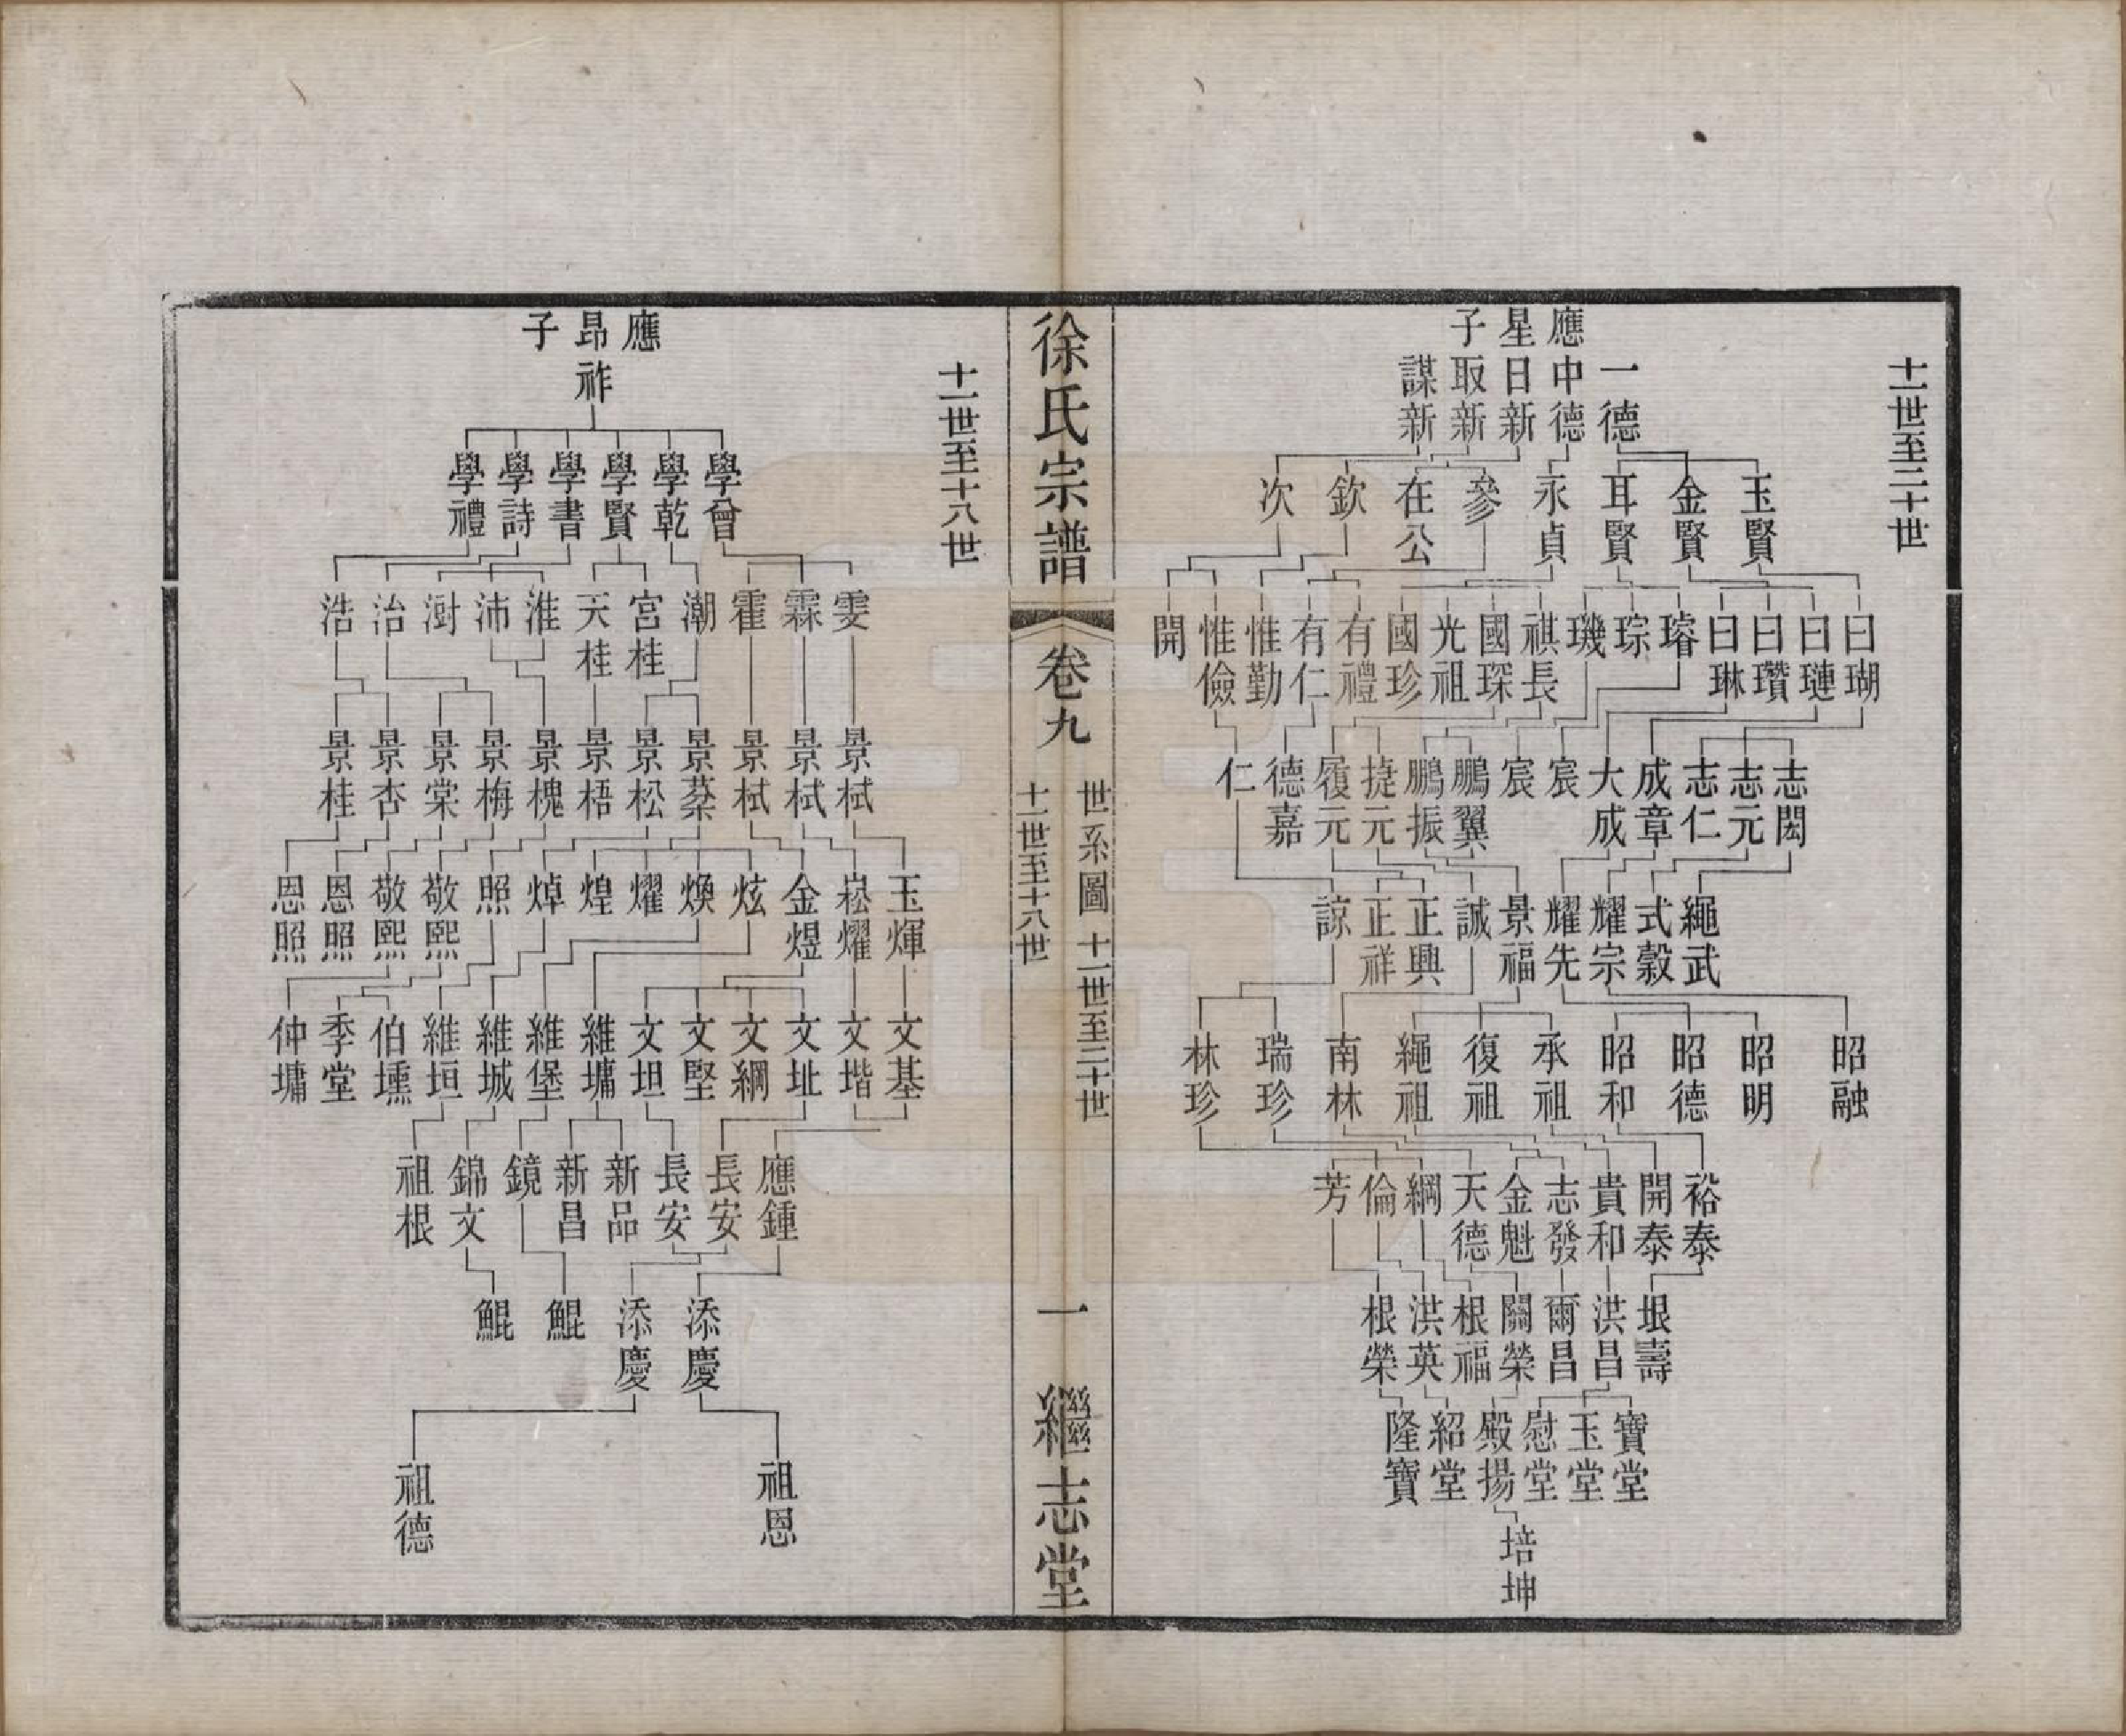 十一世至二十世
應星子
一德 中德 日新 取新 謀新
玉賢 金賢 耳賢 永貞 參 在公 欽 次
曰瑚 曰璉 曰瓚 曰琳 璿 琮 璣 祺長 國琛 光祖 國珍 有禮 有仁 惟勤 惟儉 開
志閎 志元 志仁 成章 大成 宸 宸 鵬翼 鵬振 捷元 履元 德嘉 仁
繩武 式穀 耀宗 耀先 景福 誠 正興 正祥 諒
昭融 昭明 昭德 昭和 承祖 復祖 繩祖 南林 瑞珍 林珍
裕泰 開泰 貴和 志發 金魁 天德 綱 倫 芳
垠壽 洪昌 爾昌 關榮 根福 洪英 根榮
寶堂 玉堂 慰堂 殿揚 紹堂 隆寶
培坤
徐氏宗譜
卷九
世系圖 十一世至二十世
十一世至十八世
一
繼志堂
十一世至十八世
應昂子
祚
學曾 學乾 學賢 學書 學詩 學禮
雯 霖 霍 潮 宮桂 天桂 淮 沛 澍 治 浩
景栻 景栻 景栻 景蔡 景松 景梧 景槐 景梅 景棠 景杏 景桂
玉煇 崧耀 金煜 炫 煥 耀 煌 焯 照 敬熙 敬熙 恩照 恩照
文基 文堦 文址 文綱 文堅 文坦 維墉 維堡 維城 維垣 伯壎 季堂 仲墉
應鍾 長安 長安 新品 新昌 鏡 錦文 祖根
添慶 添慶 鯤 鯤
祖恩 祖德